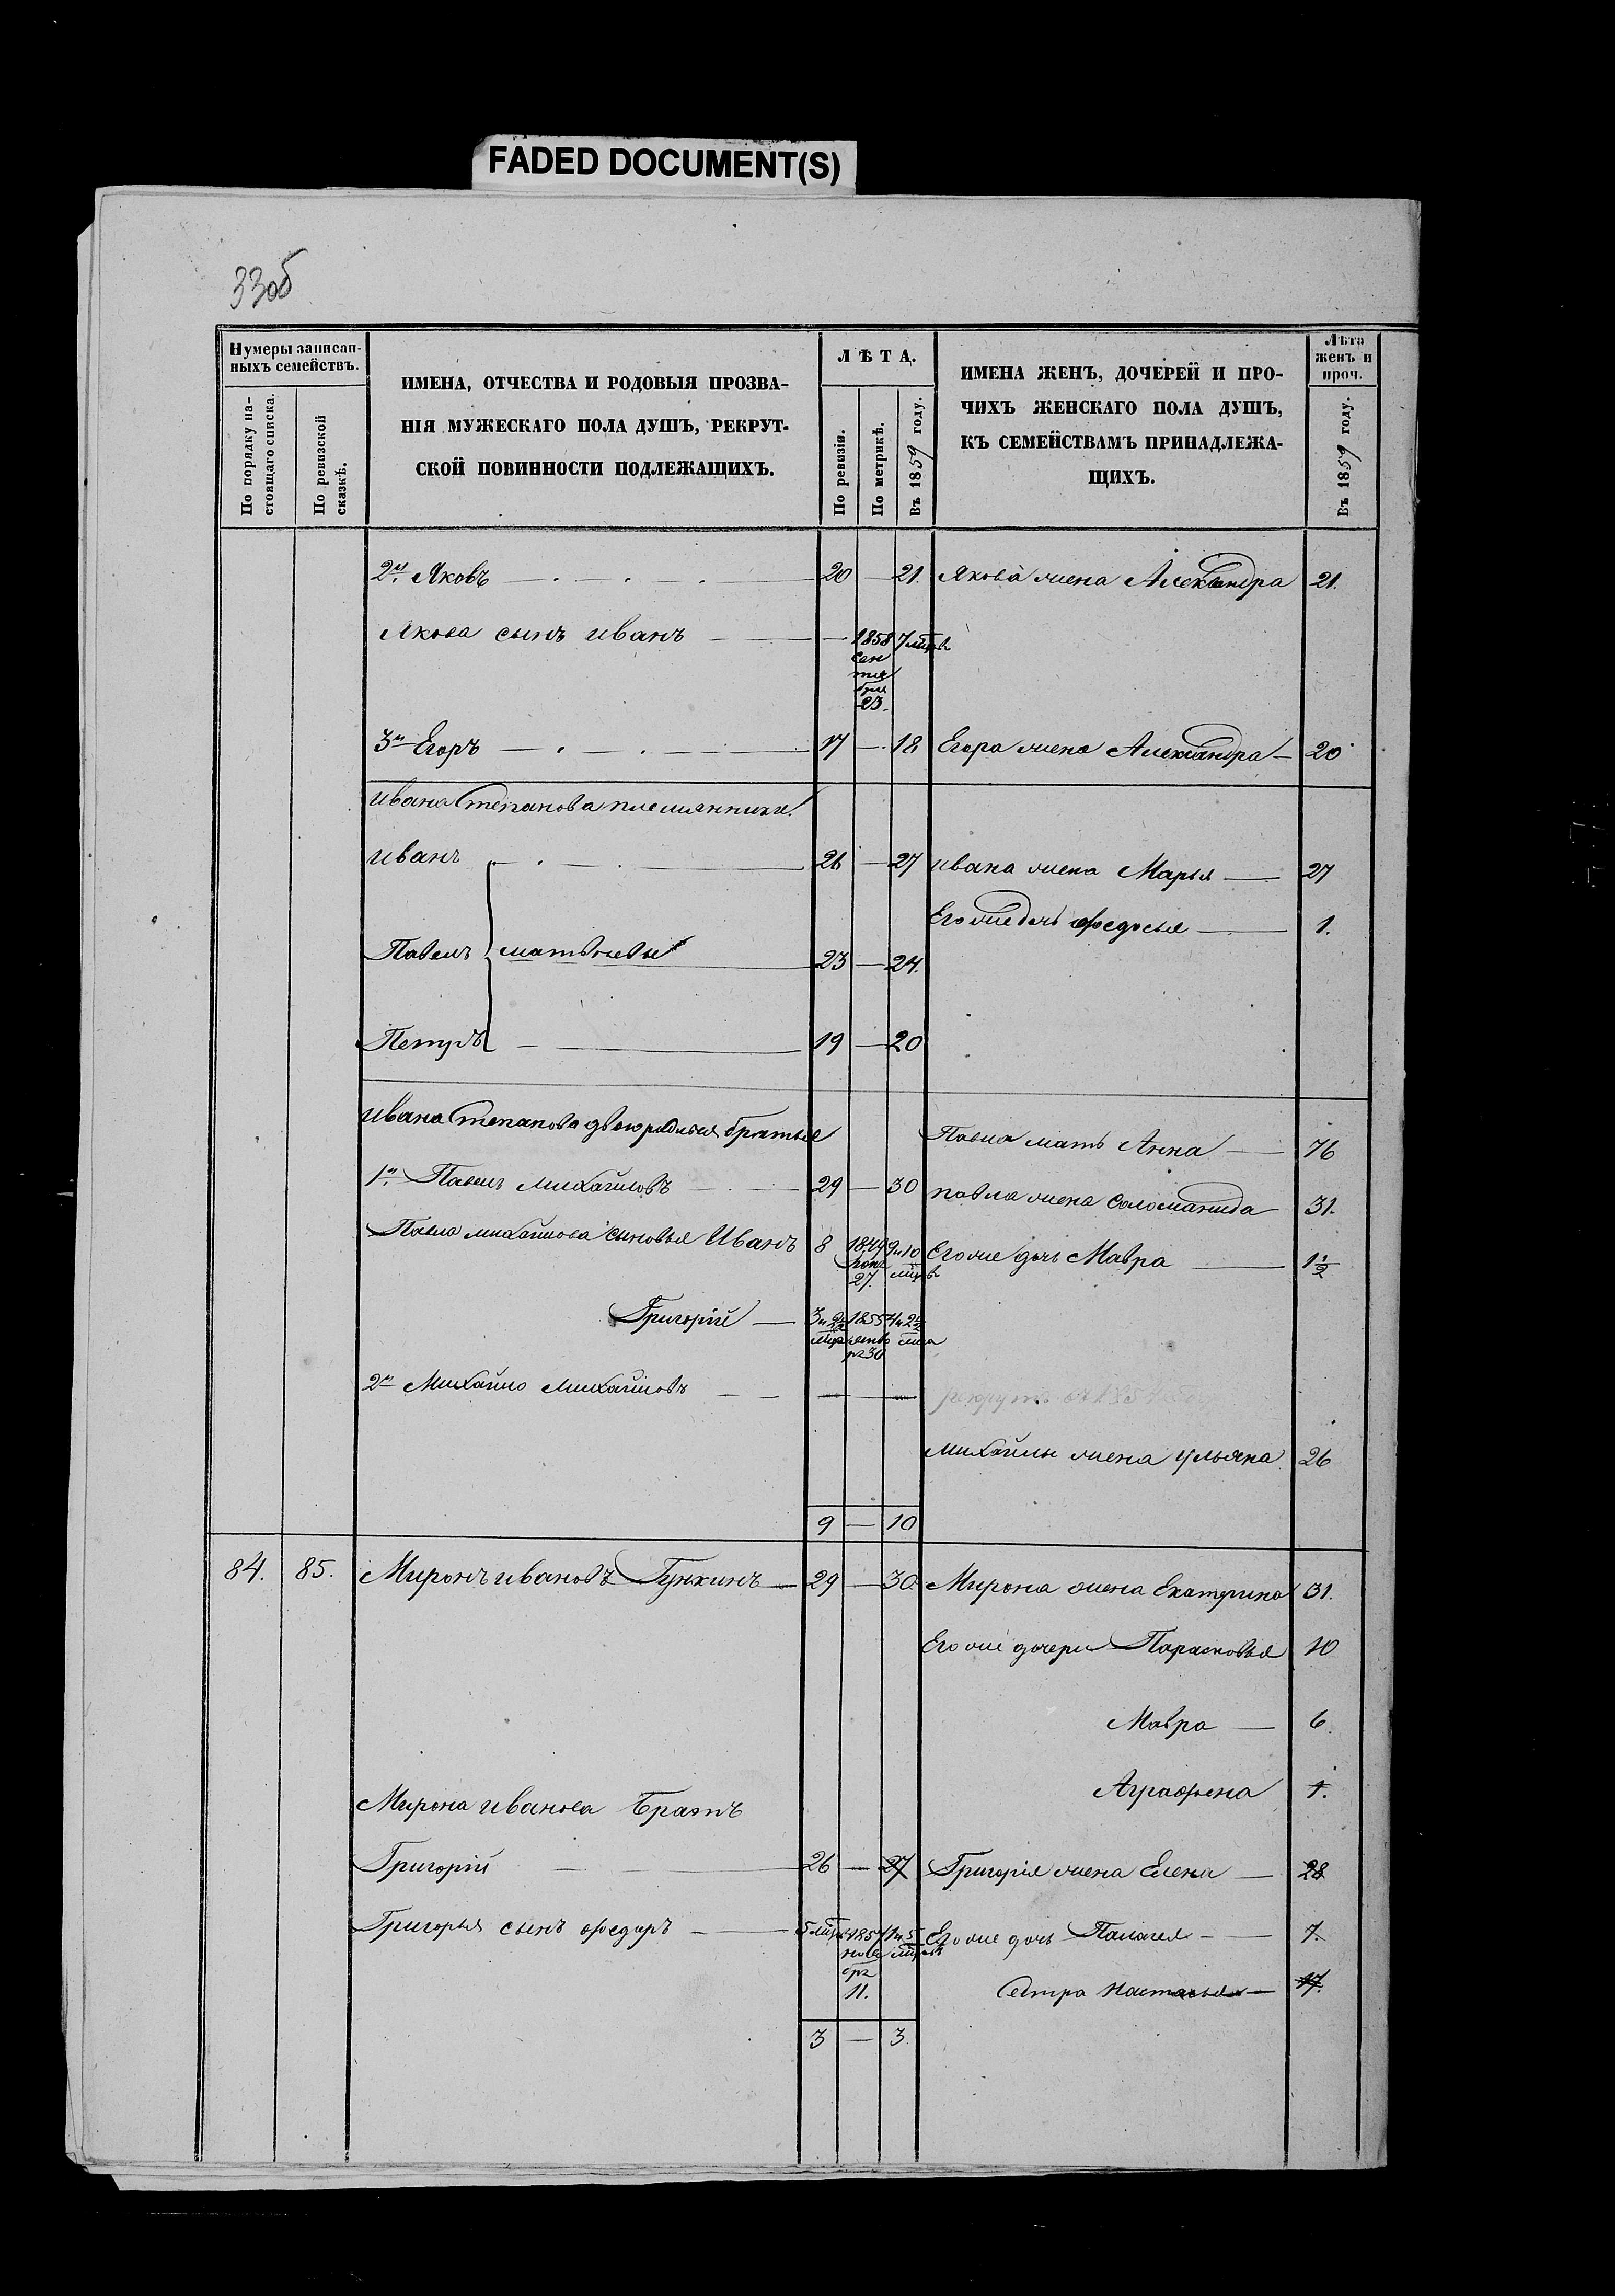 FADED DOCUMENT(S)
33об
Нумеры записан-
ныхъ семействъ.
По порядку на-
стоящаго списка.
По ревизской
сказкѣ.
ИМЕНА, ОТЧЕСТВА И РОДОВЫЯ ПРОЗВА-
НІЯ МУЖЕСКАГО ПОЛА ДУШЪ, РЕКРУТ-
СКОЙ ПОВИННОСТИ ПОДЛЕЖАЩИХЪ.
ЛѢТА.
По ревизіи.
По метрикѣ.
Въ 1859 году.
ИМЕНА ЖЕНЪ, ДОЧЕРЕЙ И ПРО-
ЧИХЪ ЖЕНСКАГО ПОЛА ДУШЪ,
КЪ СЕМЕЙСТВАМЪ ПРИНАДЛЕЖА-
ЩИХЪ.
Лѣта
женъ и
проч.
Въ 1859 году.
2й Яковъ — 20 — 21. Якова жена Александра 21.
Якова сынъ Иванъ — 1858 7 мцовъ
сен
тя
бря
23.
3й Егоръ — 17 — 18 Егора жена Александра — 20
Ивана Степанова племянники.
Иванъ — 26 — 27 Ивана жена Марья — 27
Его же дочь Федосья — 1.
Павелъ Матвѣевы 23 — 24.
Петръ — 19 — 20
Ивана Степанова двоюродныя братья
Павла мать Анна — 76
1й Павелъ Михайловъ — 29 — 30 Павла жена Соломанида 31.
Павла Михайлова сыновья Иванъ 8 1849 9 и 10 Его же дочь Мавра — 1 1/2
27. мцовъ
Григорій — 3 и 1855 4 и
30
2й Михайло Михайловъ — — — рекрут. въ
Михайлы жена Ульяна 26
9 — 10
84. 85. Миронъ Ивановъ Гункинъ — 29 — 30 Мирона жена Екатерина 31.
Его же дочери Парасковья 10
Мавра — 6.
Аграфена 1.
Мирона Иванова Братъ
Григорій — 26 — 27 Григорія жена Елена — 28
Григорья сынъ Федоръ — 5 мцовъ 1857 1 и 5 Его же дочь Палагея — 7.
ноя мцовъ
бря
11.
Сестра Настасья — 17.
3 — 3.